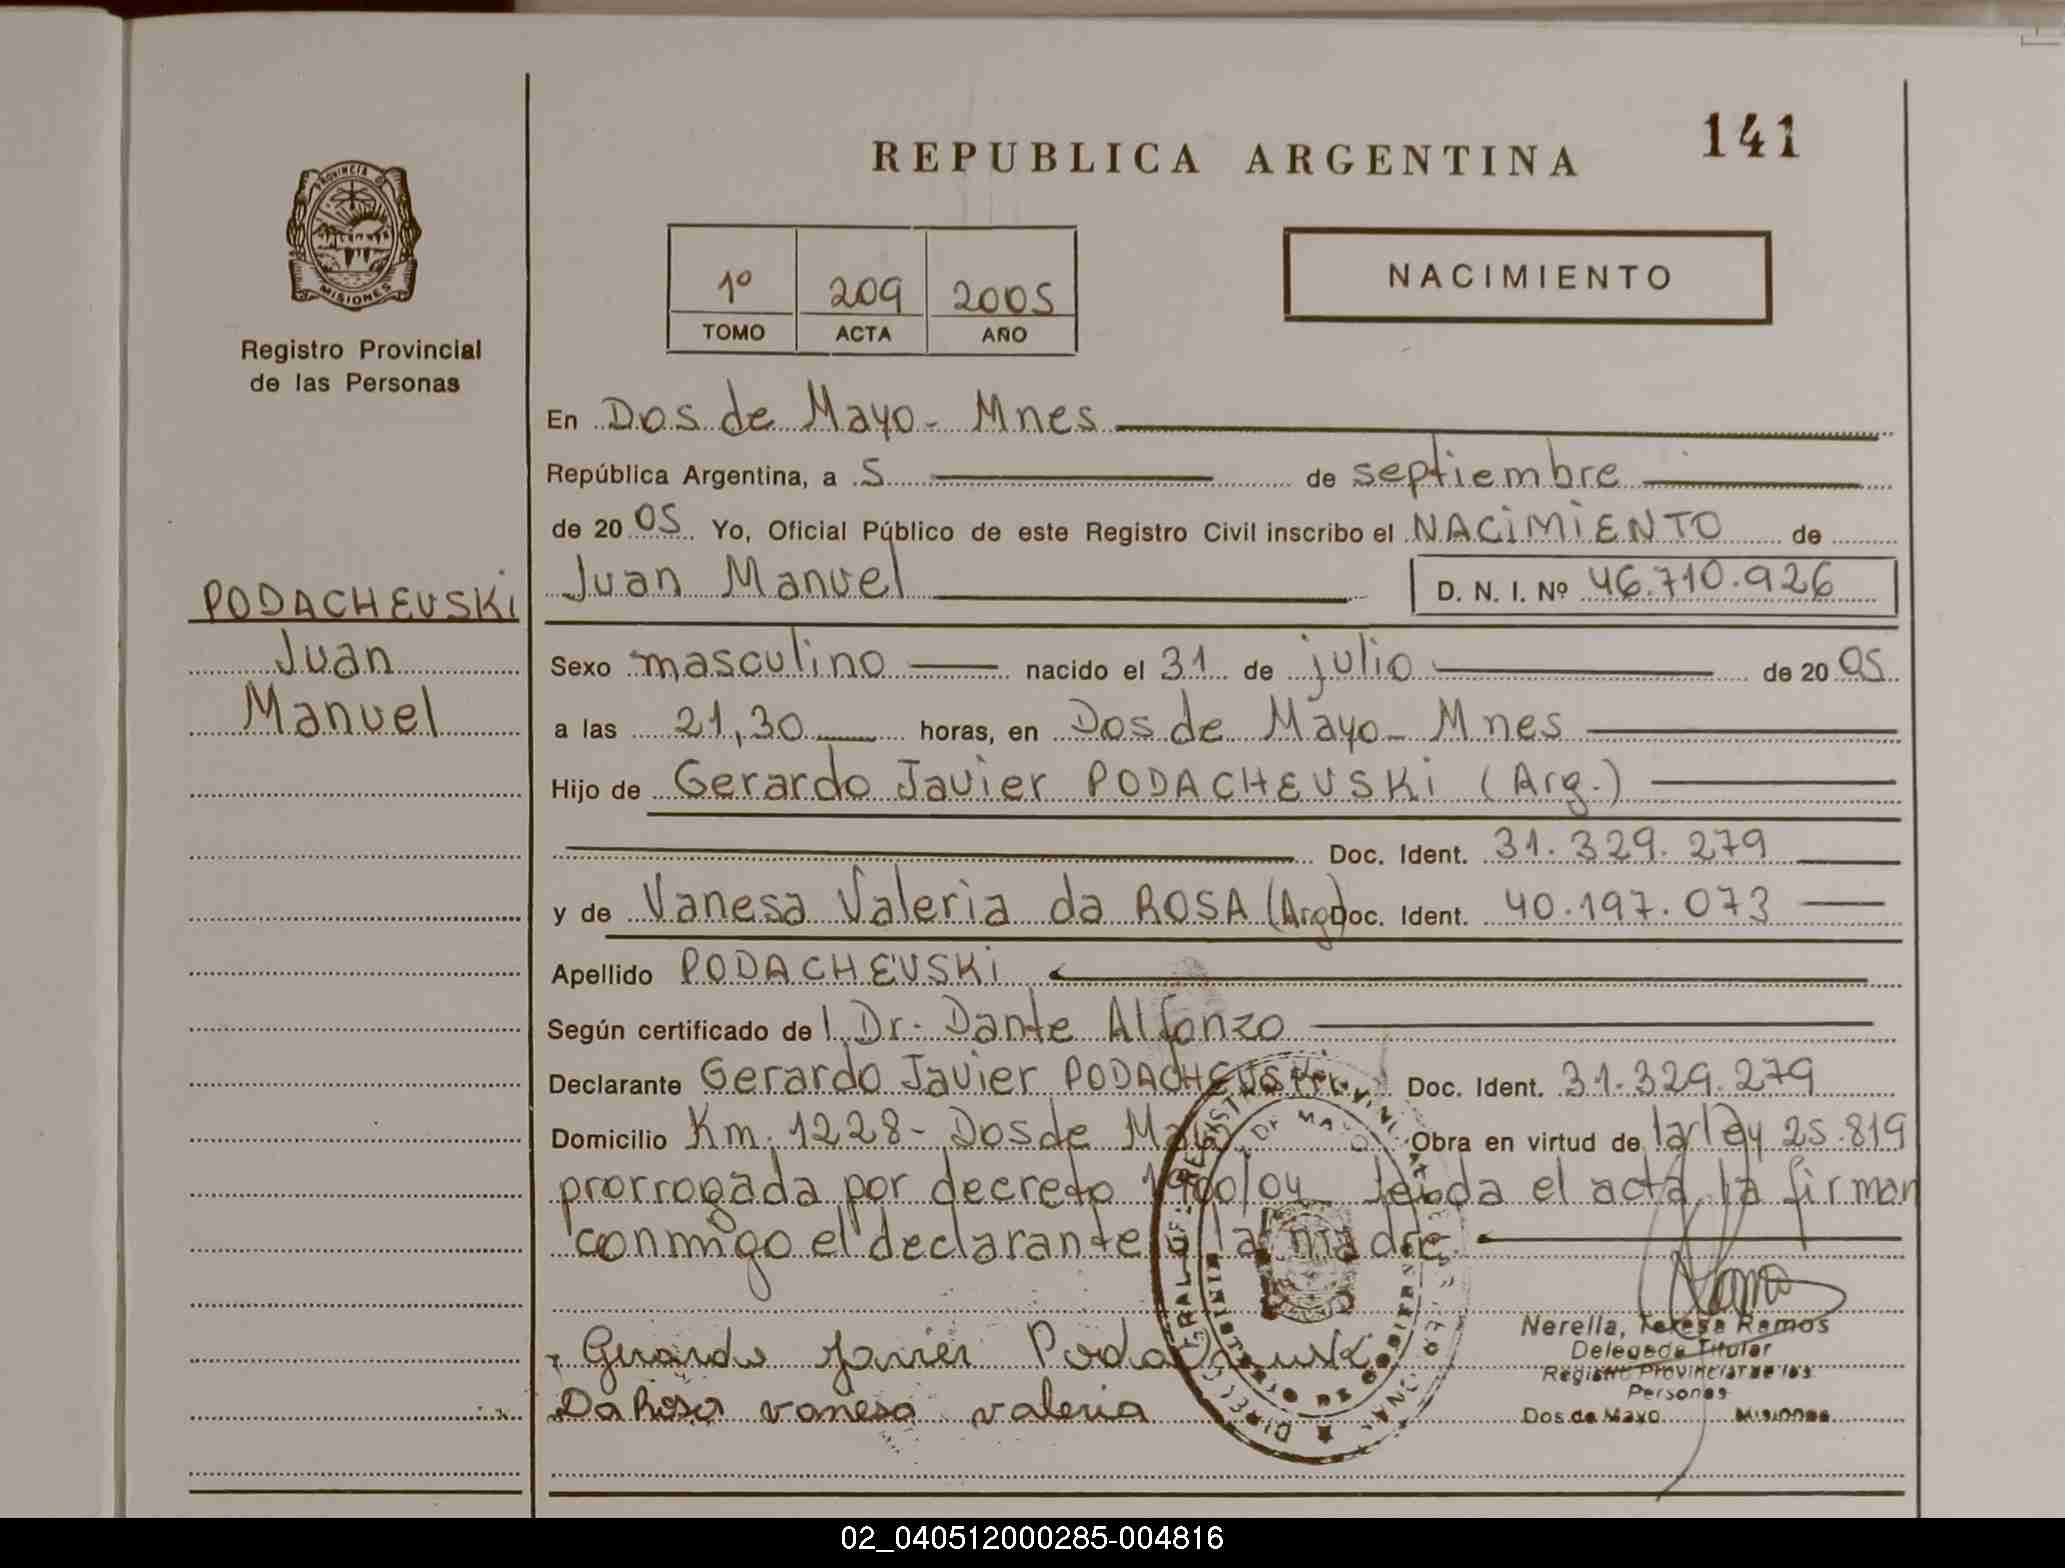 141
REPUBLICA ARGENTINA
PROVINCIA DE
MISIONES
Registro Provincial
de las Personas
1º 209 2005
TOMO ACTA AÑO
NACIMIENTO
En Dos de Mayo - Mnes
República Argentina, a 5 de septiembre
de 2005 Yo, Oficial Público de este Registro Civil inscribo el NACIMIENTO de
Juan Manuel D. N. I. Nº 46.710.926
PODACHEVSKI
Juan
Manuel
Sexo masculino nacido el 31 de julio de 2005
a las 21,30 horas, en Dos de Mayo - Mnes
Hijo de Gerardo Javier PODACHEVSKI (Arg.)
Doc. Ident. 31.329.279
y de Vanesa Valeria da ROSA (Arg) Doc. Ident. 40.197.073
Apellido PODACHEVSKI
Según certificado del Dr. Dante Alfonzo
Declarante Gerardo Javier PODACHEVSKI Doc. Ident. 31.329.279
Domicilio Km. 1228 - Dos de Mayo Obra en virtud de la ley 25.819
prorrogada por decreto Leída el acta, la firman
conmigo el declarante y la madre.
Gerardo Javier Podachevski
Da Rosa vanesa valeria
Nerella, Teresa Ramos
Delegada Titular
Registro Provincial de las
Personas
Dos de Mayo Misiones
02_040512000285-004816